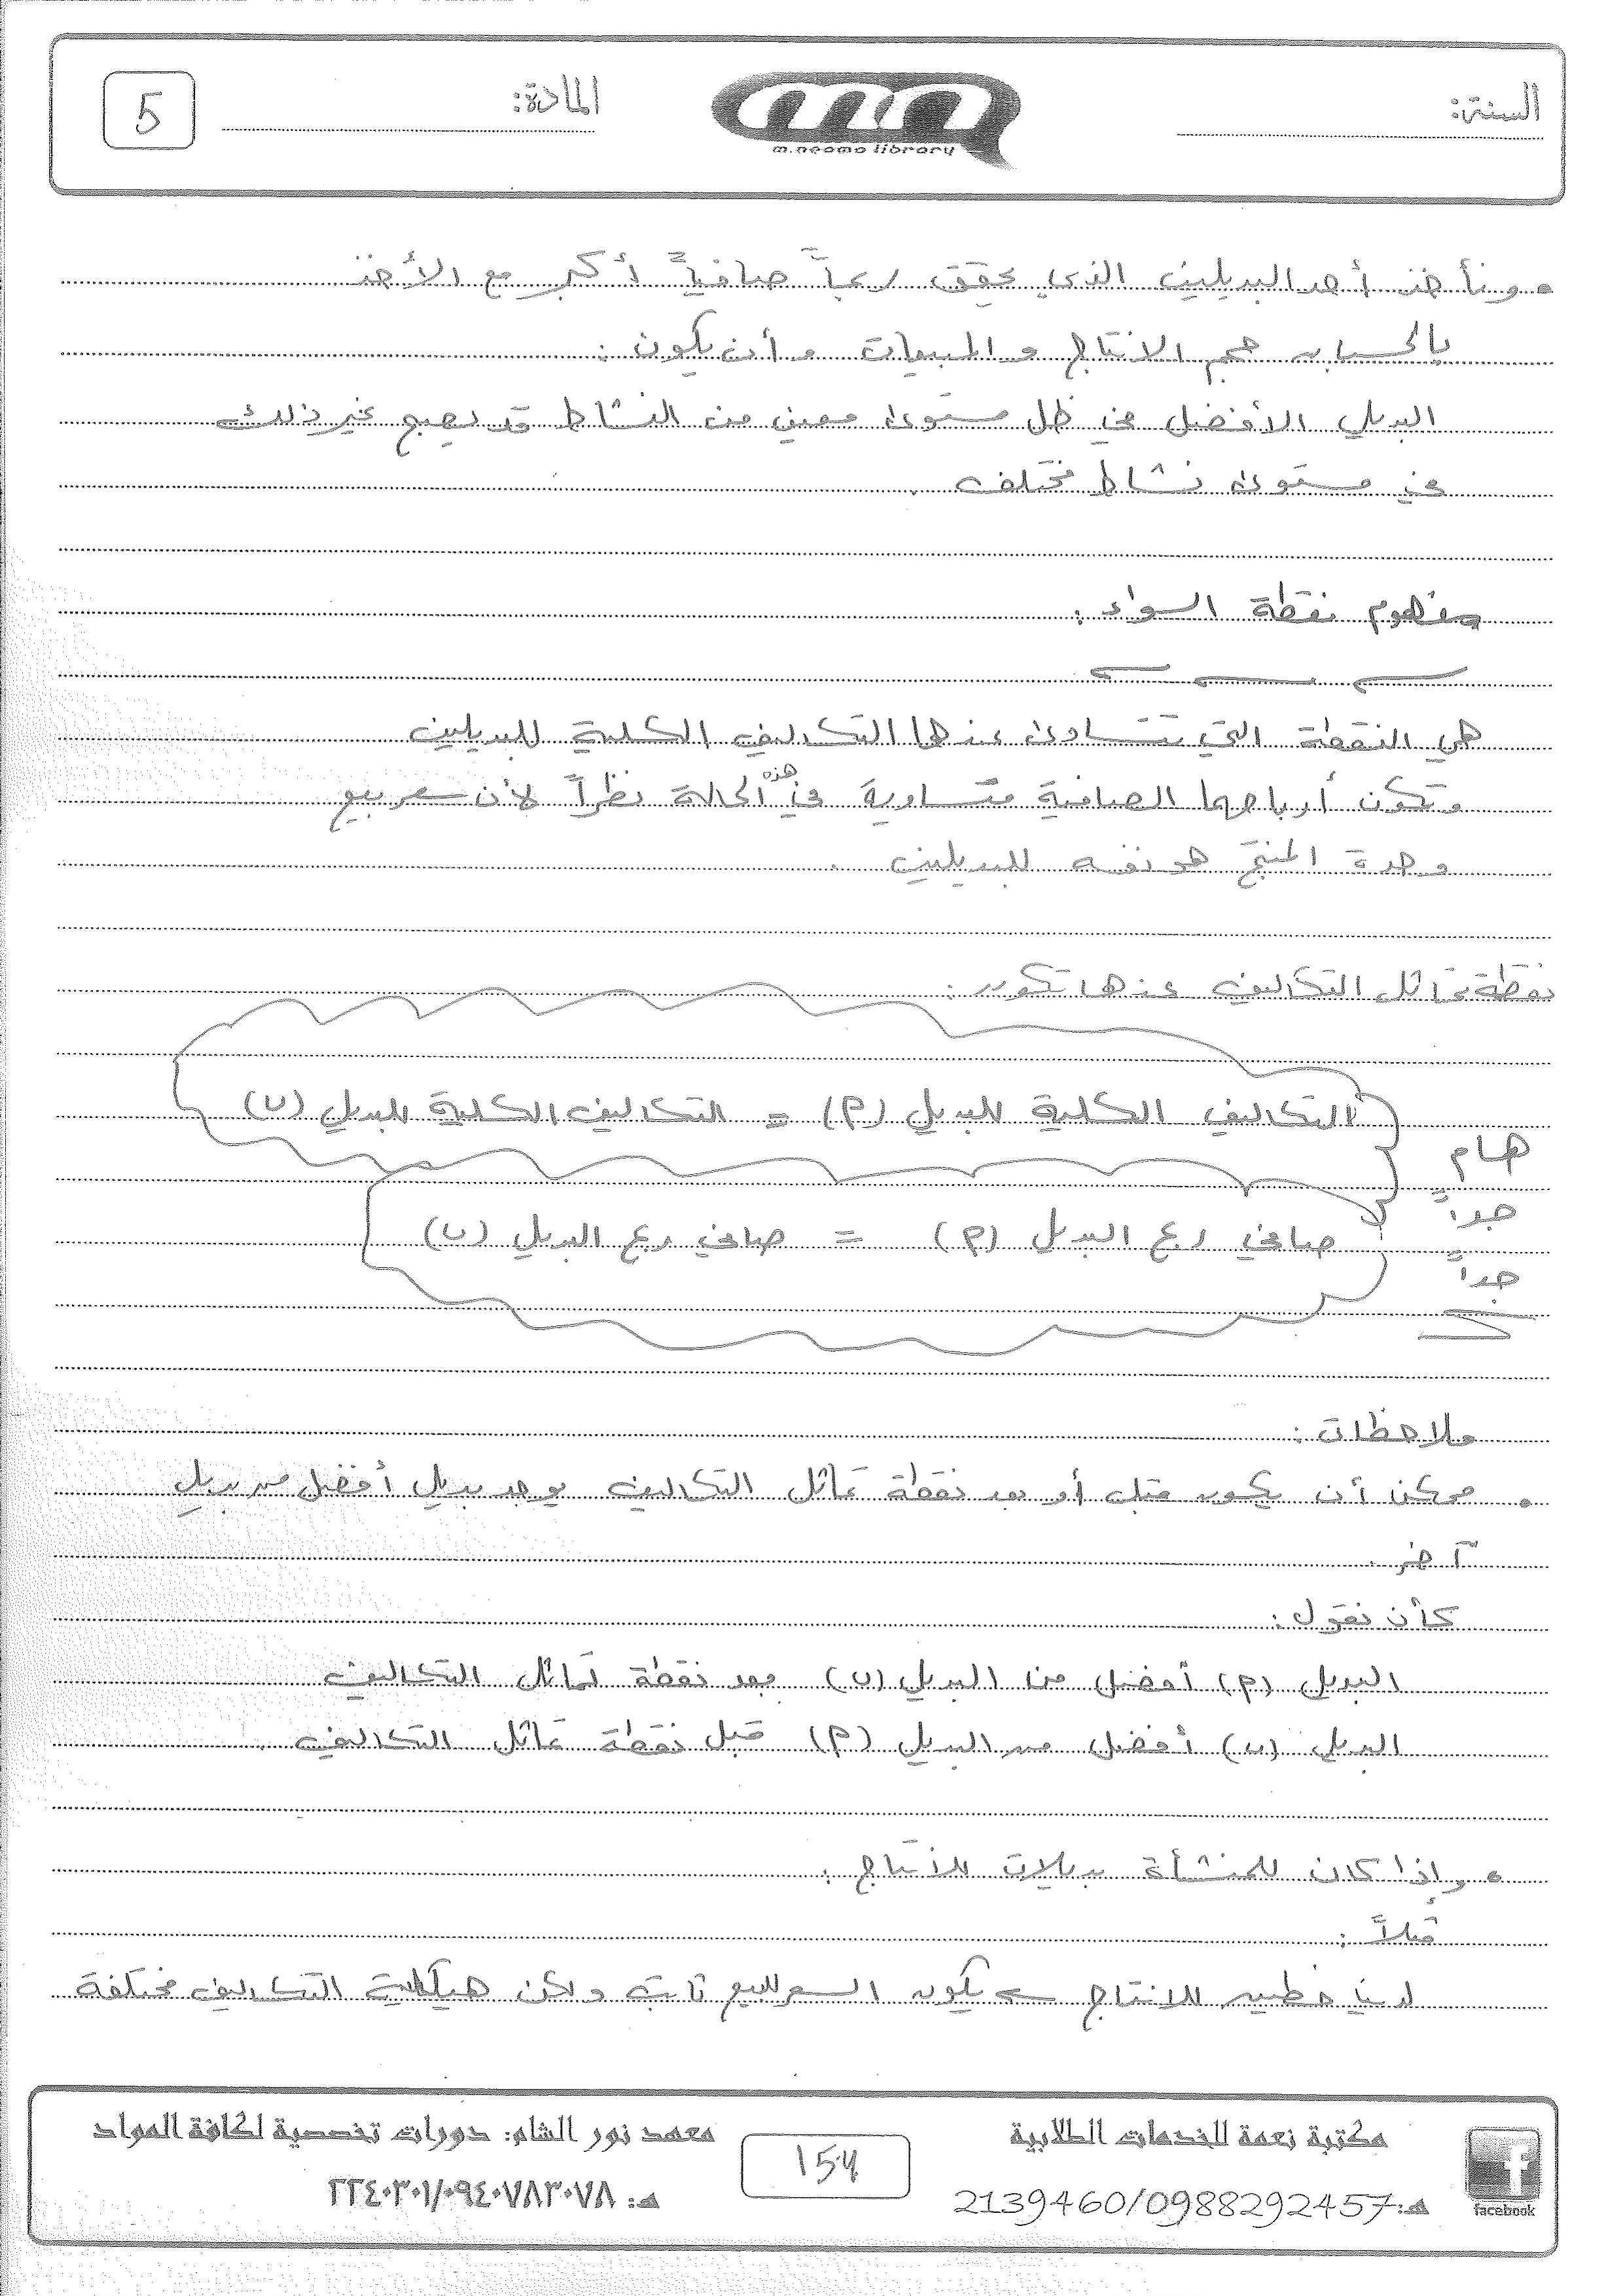 السنة:
m.neama library
المادة:
5
• ونأخذ أحد البديلين الذي يحقق ربحاً صافياً أكبر مع الأخذ
بالحساب حجم الانتاج والمبيعات وأن يكون :
البديل الأفضل في ظل مستوى معين من النشاط قد يصبح غير ذلك
في مستوى نشاط مختلف .
مفهوم نقطة السواء :
هي النقطة التي تتساوى عندها التكاليف الكلية للبديلين
وتكون أرباحهما الصافية متساوية في هذه الحالة نظراً لأن سعر بيع
وحدة المنتج هو نفسه للبديلين .
نقطة تماثل التكاليف عندها تكون :
التكاليف الكلية للبديل (م) = التكاليف الكلية للبديل (ب)
هام
صافي ربح البديل (م) = صافي ربح البديل (ب)
جداً
جداً
ملاحظات :
• ممكن أن يكون قبل أو بعد نقطة تماثل التكاليف يوجد بديل أفضل من بديل
آخر .
كأن نقول :
البديل (م) أفضل من البديل (ب) بعد نقطة تماثل التكاليف
البديل (ب) أفضل من البديل (م) قبل نقطة تماثل التكاليف .
• وإذا كان للمنشأة بديلات للانتاج :
مثلاً :
لدينا خطين للانتاج يكون السعر للبيع ثابت ولكن هيكلية التكاليف مختلفة
مكتبة نعمة للخدمات الطلابية
هـ:2139460/0988292457
facebook
154
معهد نور الشام: دورات تخصصية لكافة المواد
هـ: ٢٢٤٠٣٠١/٠٩٤٠٧٨٣٠٧٨